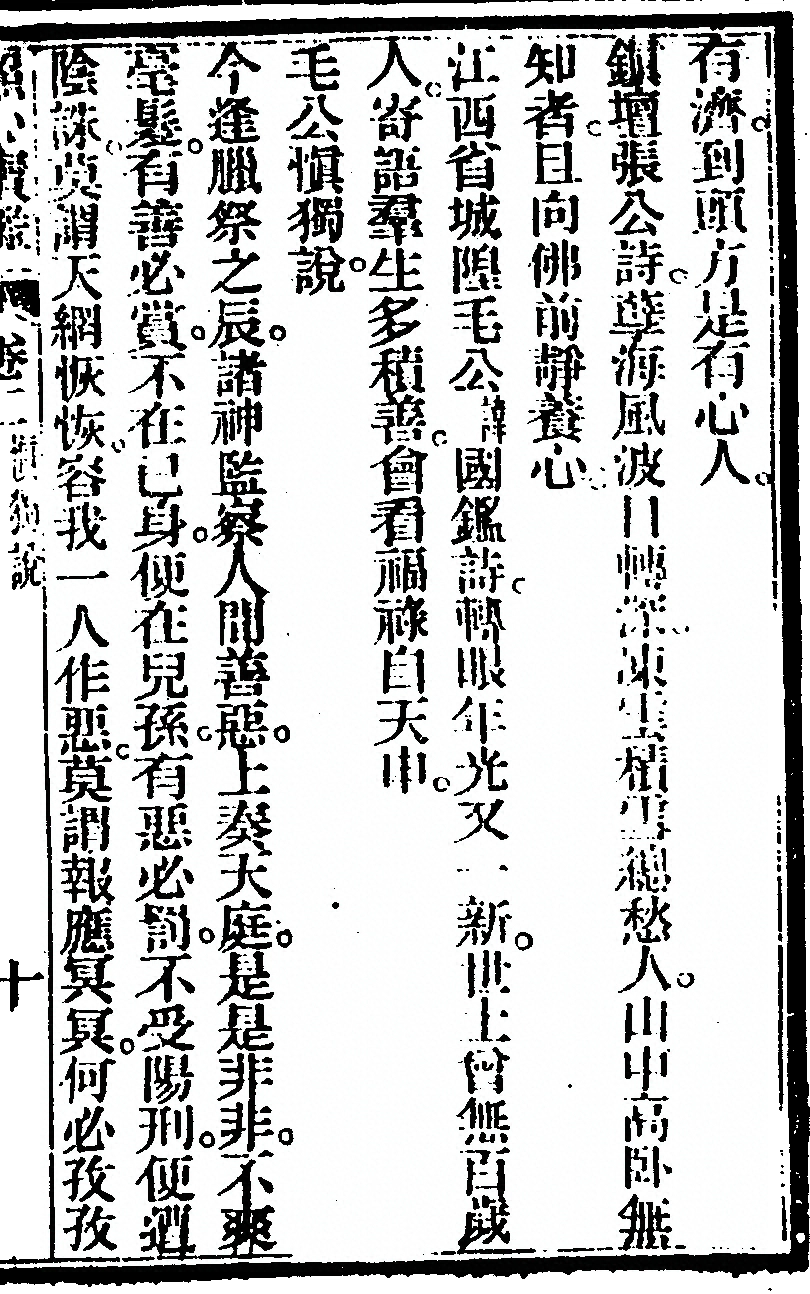 有濟。到頭方是有心人。
鎮壇張公詩。孽海風波日轉深。凍雲積雪總愁人。山中高卧無
知者。且向佛前靜養心。
江西省城隍毛公諱國鑑詩。轉眼年光又一新。世上曾無百歲
人。寄語羣生多積善。會看福祿自天申。
毛公愼獨說。
今逢臘祭之辰。諸神監察人間善惡。上奏天庭。是是非非。不爽
毫髮。有善必賞。不在已身。便在兒孫。有惡必罰。不受陽刑。便遭
陰誅。莫謂天網恢恢。容我一人作惡。莫謂報應冥冥。何必孜孜
卷二 愼獨說 十